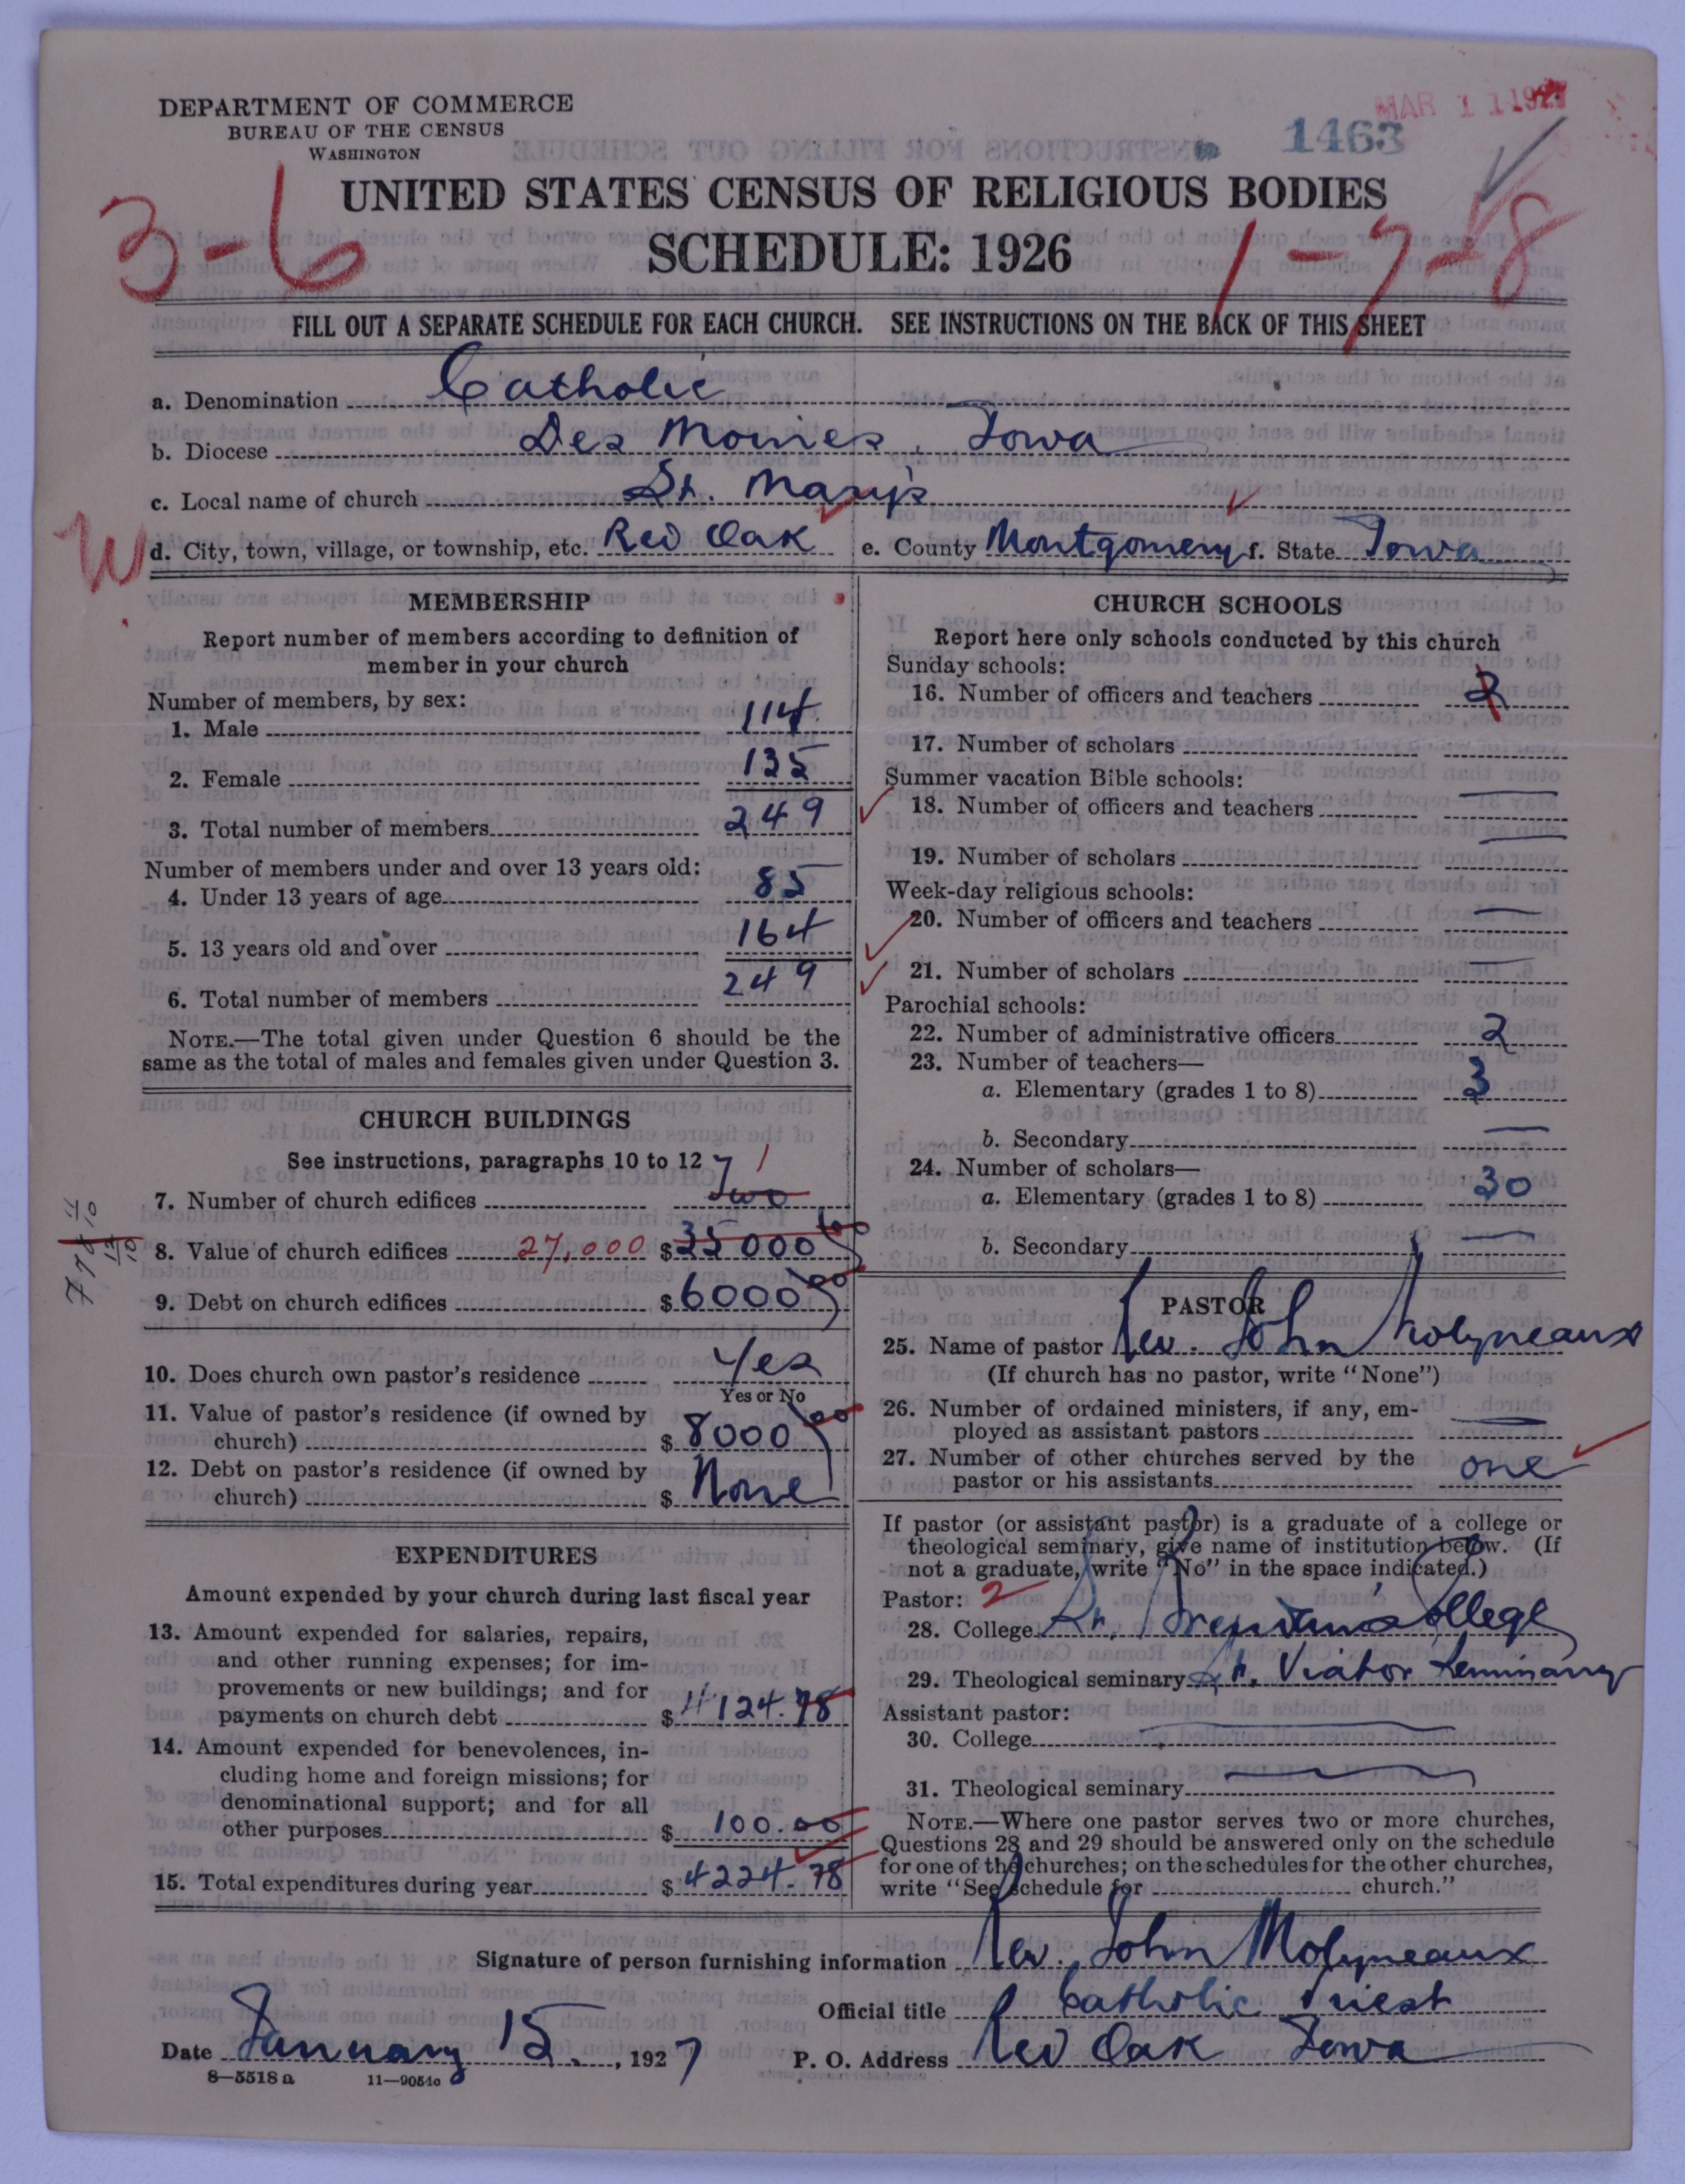 DEPARTMENT OF COMMERCE
BUREAU OF THE CENSUS
WASHINGTON
MAR 11 1927
1463
UNITED STATES CENSUS OF RELIGIOUS BODIES
SCHEDULE: 1926
3-6
1-7-8
FILL OUT A SEPARATE SCHEDULE FOR EACH CHURCH. SEE INSTRUCTIONS ON THE BACK OF THIS SHEET
a. Denomination Catholic
b. Diocese Des Moines, Iowa
c. Local name of church St. Mary's
W
d. City, town, village, or township, etc. Red Oak e. County Montgomery f. State Iowa
MEMBERSHIP
Report number of members according to definition of
member in your church
Number of members, by sex:
1. Male 114
2. Female 135
3. Total number of members 249
Number of members under and over 13 years old:
4. Under 13 years of age 85
5. 13 years old and over 164
6. Total number of members 249
NOTE.—The total given under Question 6 should be the
same as the total of males and females given under Question 3.
CHURCH BUILDINGS
See instructions, paragraphs 10 to 12
7. Number of church edifices Two 1
8. Value of church edifices 27,000 $35000 00
9. Debt on church edifices $6000 00
10. Does church own pastor's residence Yes
Yes or No
11. Value of pastor's residence (if owned by
church) $8000 00
12. Debt on pastor's residence (if owned by
church) $ None
EXPENDITURES
Amount expended by your church during last fiscal year
13. Amount expended for salaries, repairs,
and other running expenses; for im-
provements or new buildings; and for
payments on church debt $4124.78
14. Amount expended for benevolences, in-
cluding home and foreign missions; for
denominational support; and for all
other purposes $100.00
15. Total expenditures during year $4224.78
CHURCH SCHOOLS
Report here only schools conducted by this church
Sunday schools:
16. Number of officers and teachers 2
17. Number of scholars
Summer vacation Bible schools:
18. Number of officers and teachers —
19. Number of scholars —
Week-day religious schools:
20. Number of officers and teachers —
21. Number of scholars —
Parochial schools:
22. Number of administrative officers 2
23. Number of teachers—
a. Elementary (grades 1 to 8) 3
b. Secondary —
24. Number of scholars—
a. Elementary (grades 1 to 8) 30
b. Secondary —
PASTOR
25. Name of pastor Rev. John Molyneaux
(If church has no pastor, write "None")
26. Number of ordained ministers, if any, em-
ployed as assistant pastors —
27. Number of other churches served by the
pastor or his assistants one
If pastor (or assistant pastor) is a graduate of a college or
theological seminary, give name of institution below. (If
not a graduate, write "No" in the space indicated.)
Pastor: 2
28. College St. College
29. Theological seminary St. Viator Seminary
Assistant pastor:
30. College —
31. Theological seminary —
NOTE.—Where one pastor serves two or more churches,
Questions 28 and 29 should be answered only on the schedule
for one of the churches; on the schedules for the other churches,
write "See schedule for church."
Signature of person furnishing information Rev. John Molyneaux
Official title Catholic Priest
Date January 15, 1927 P. O. Address Red Oak Iowa
8—5518 a 11—9054o